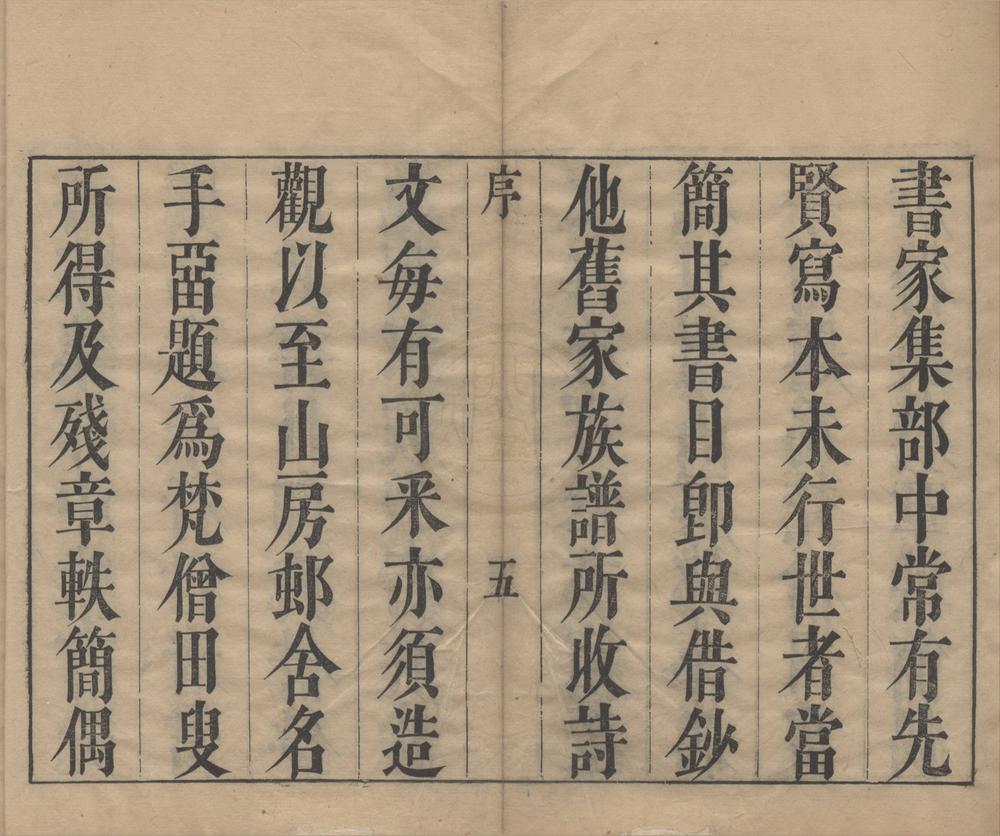 書家集部中常有先
賢寫本未行世者當
簡其書目卽與借鈔
他舊家族譜所收詩
序 五
文每有可釆亦須造
觀以至山房邨舍名
手亞題爲梵僧田叟
所得及殘章軼簡偶